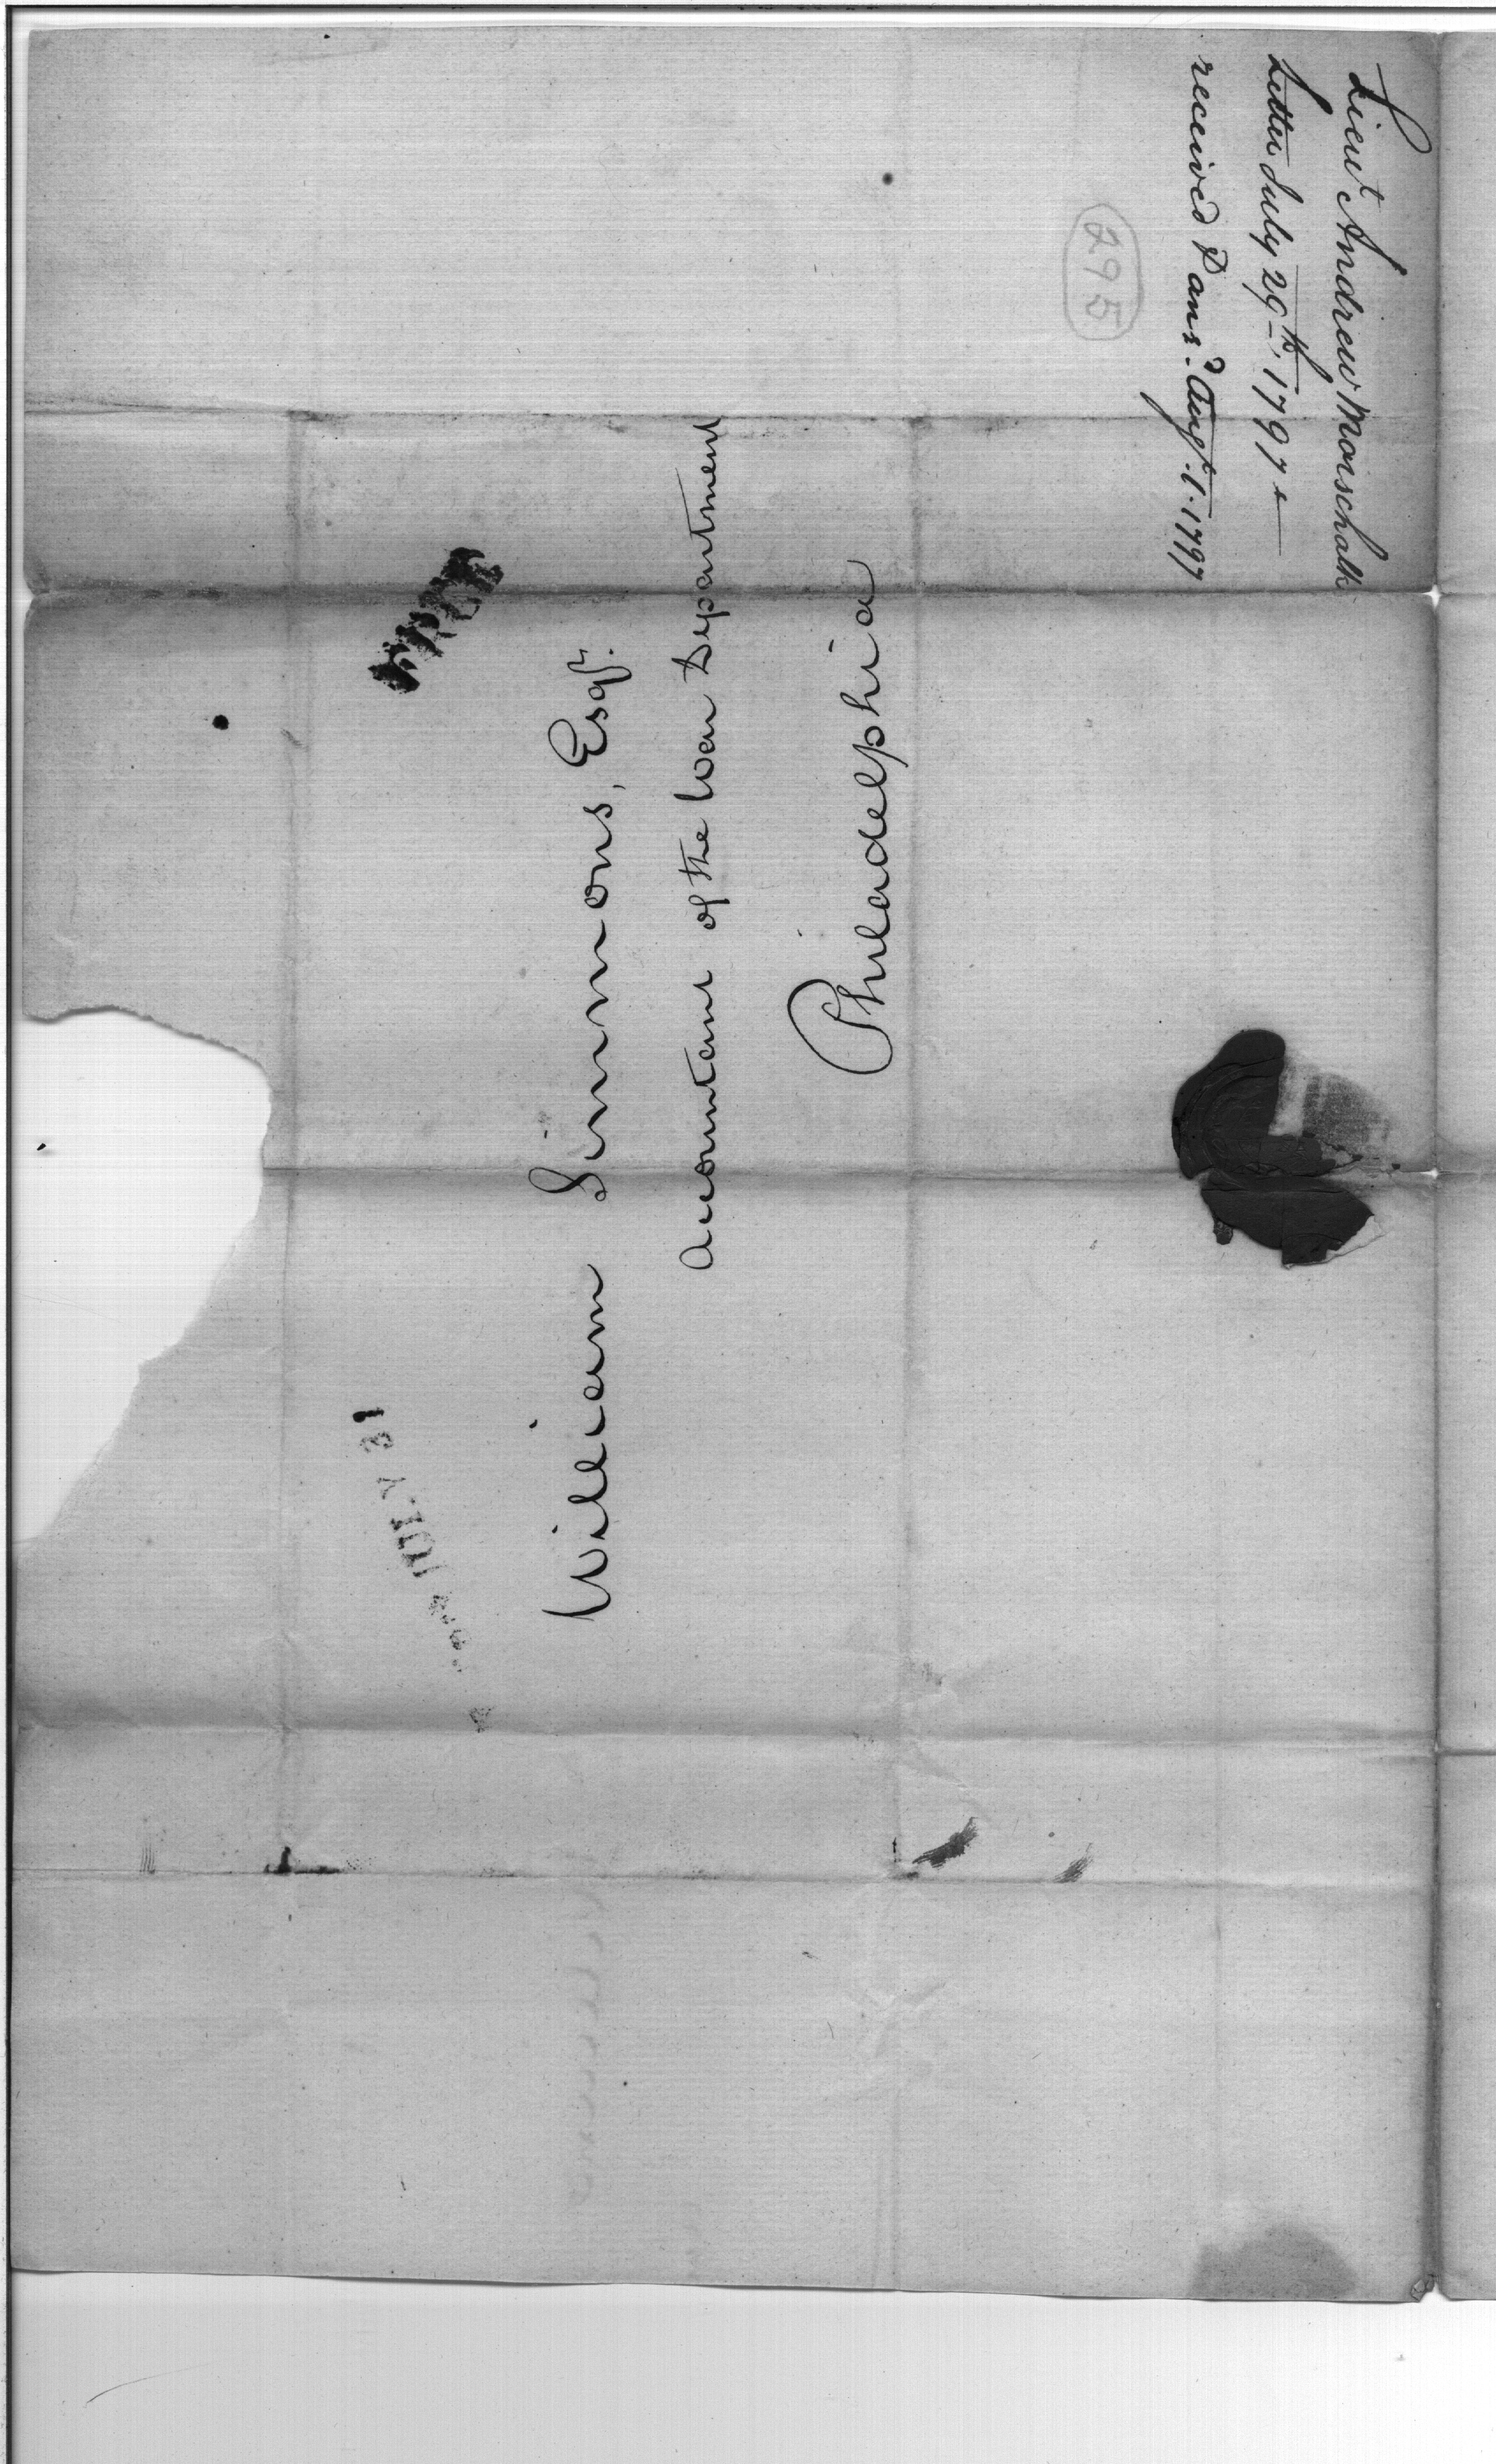 Lieut Andrew Marschalk
Letter July 29th. 1797
received & ansd. Augt. 1. 1797
295
FREE
William Simmons, Esqr.
Accountant of the War Department
Philadelphia
JULY 31